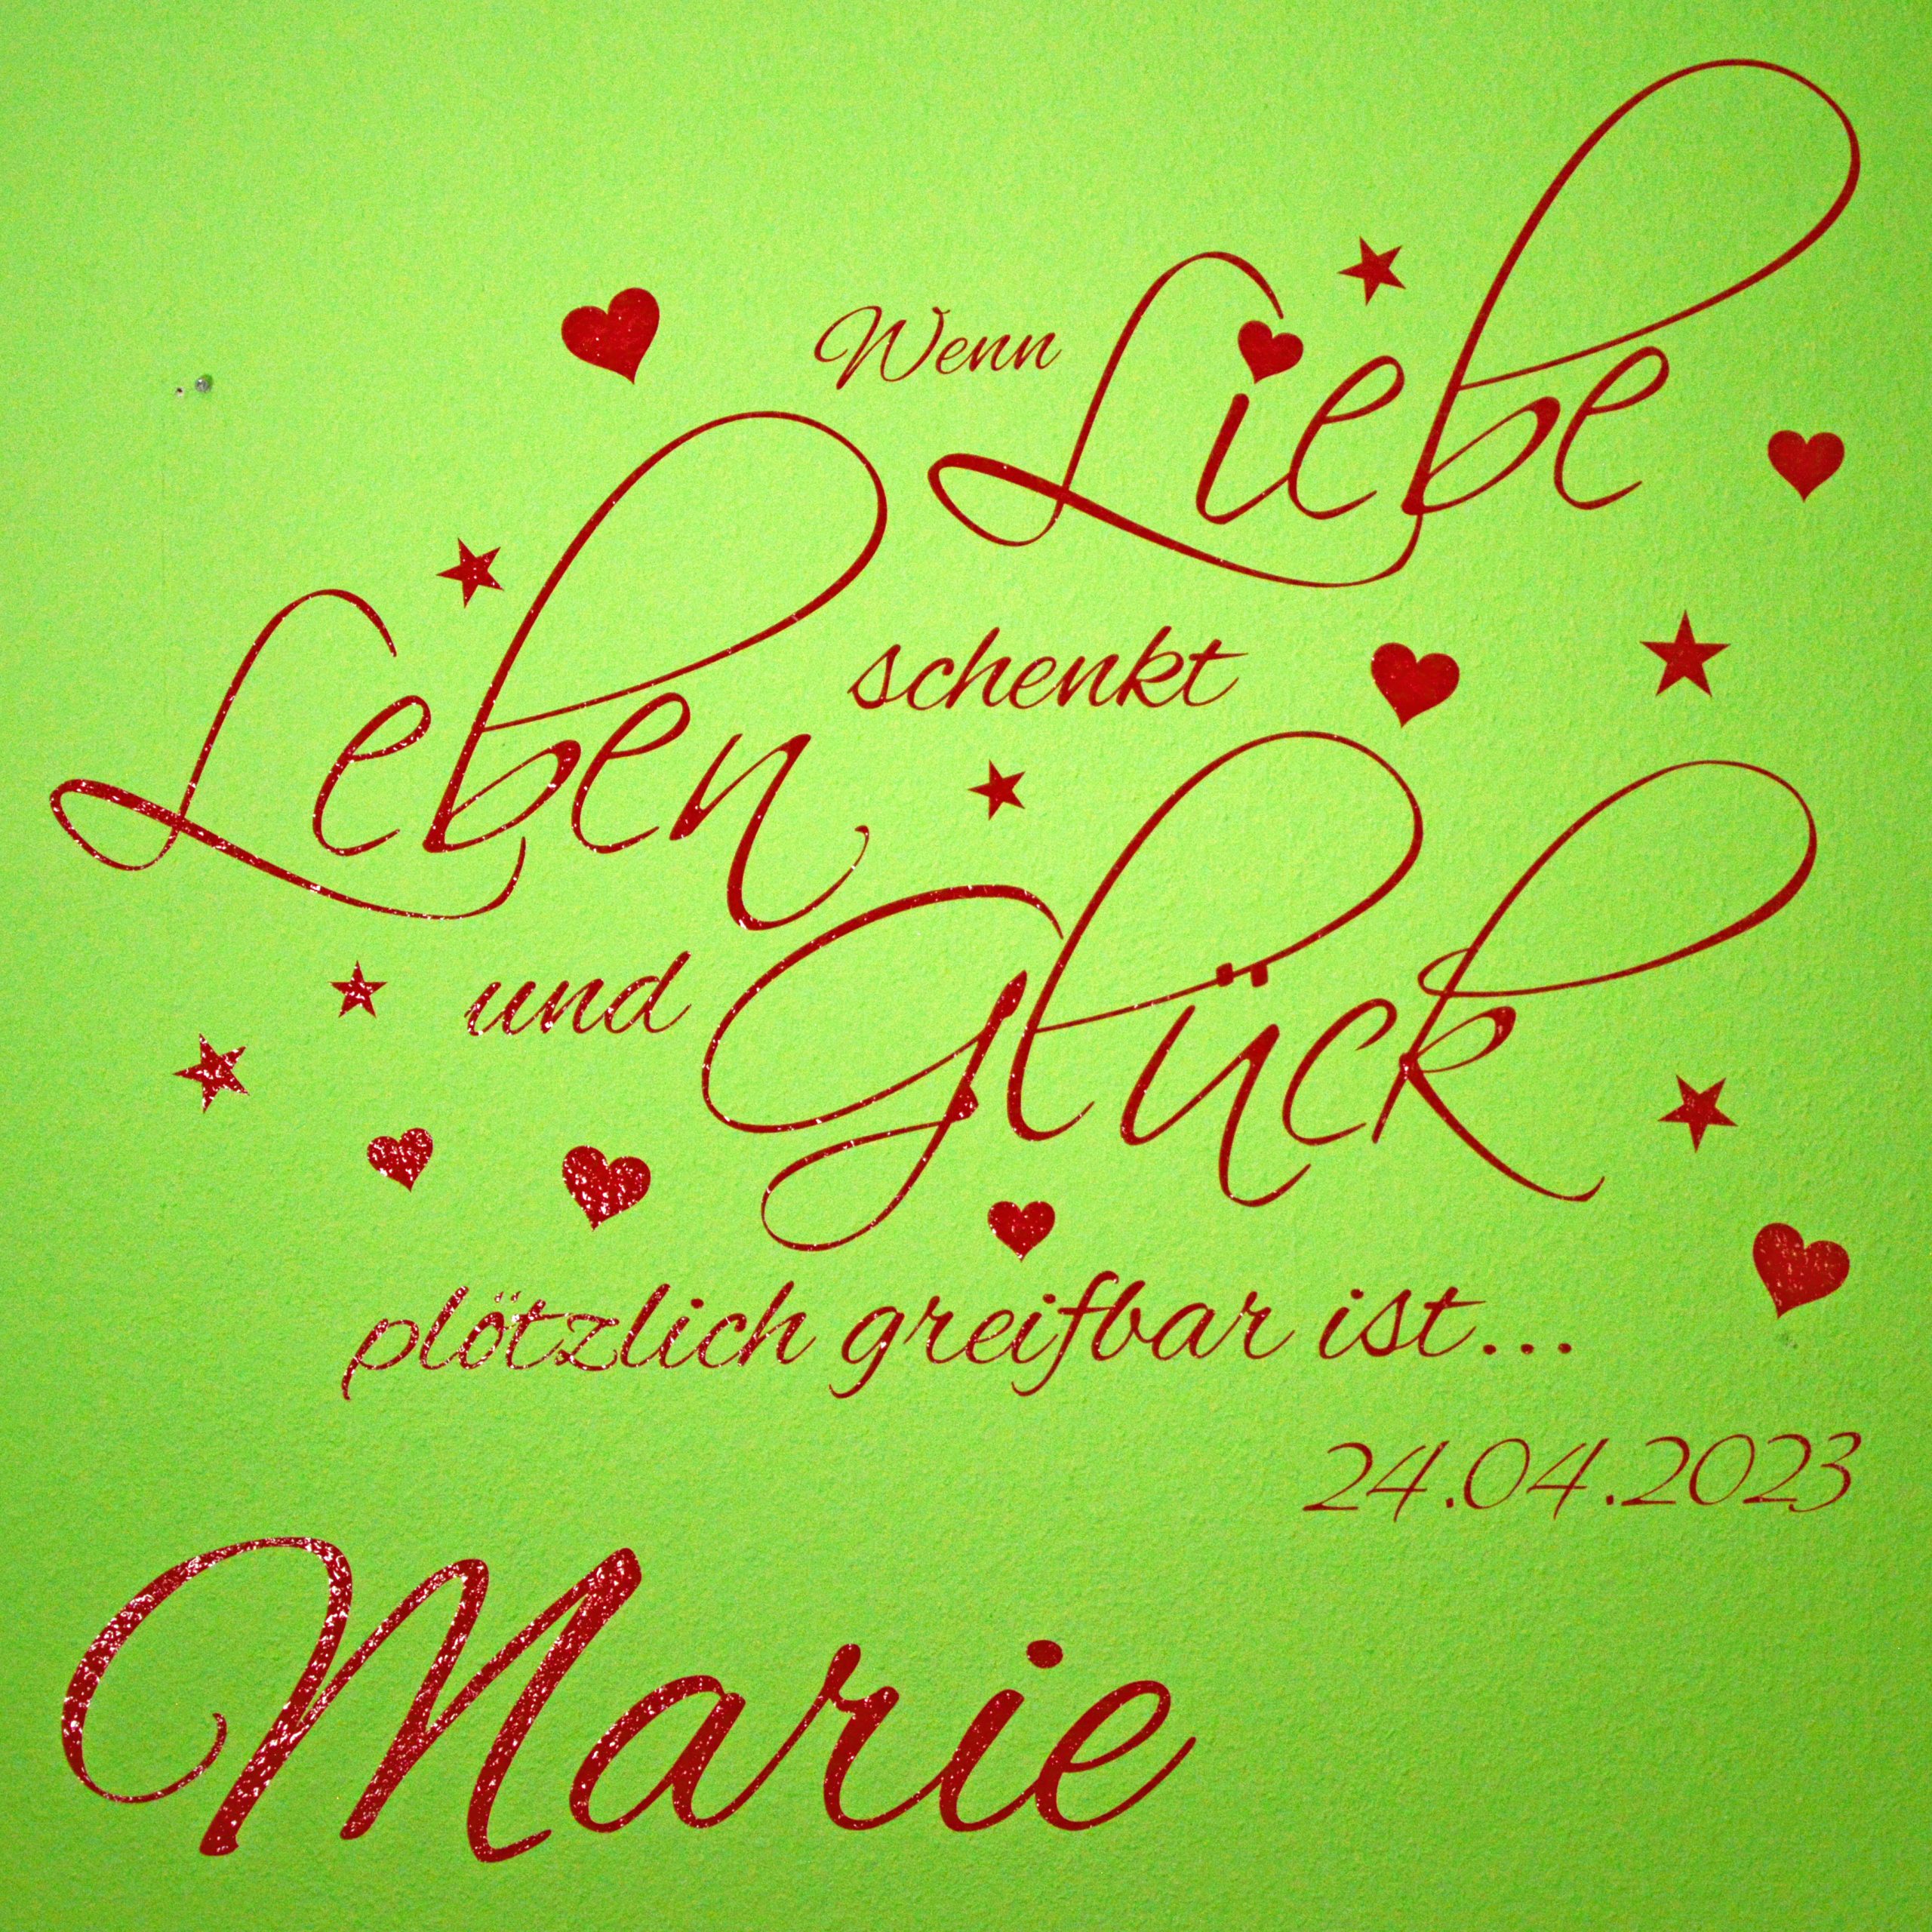 Wenn Liebe
Leben schenkt
und Glück
plötzlich greifbar ist...
24.04.2023
Marie